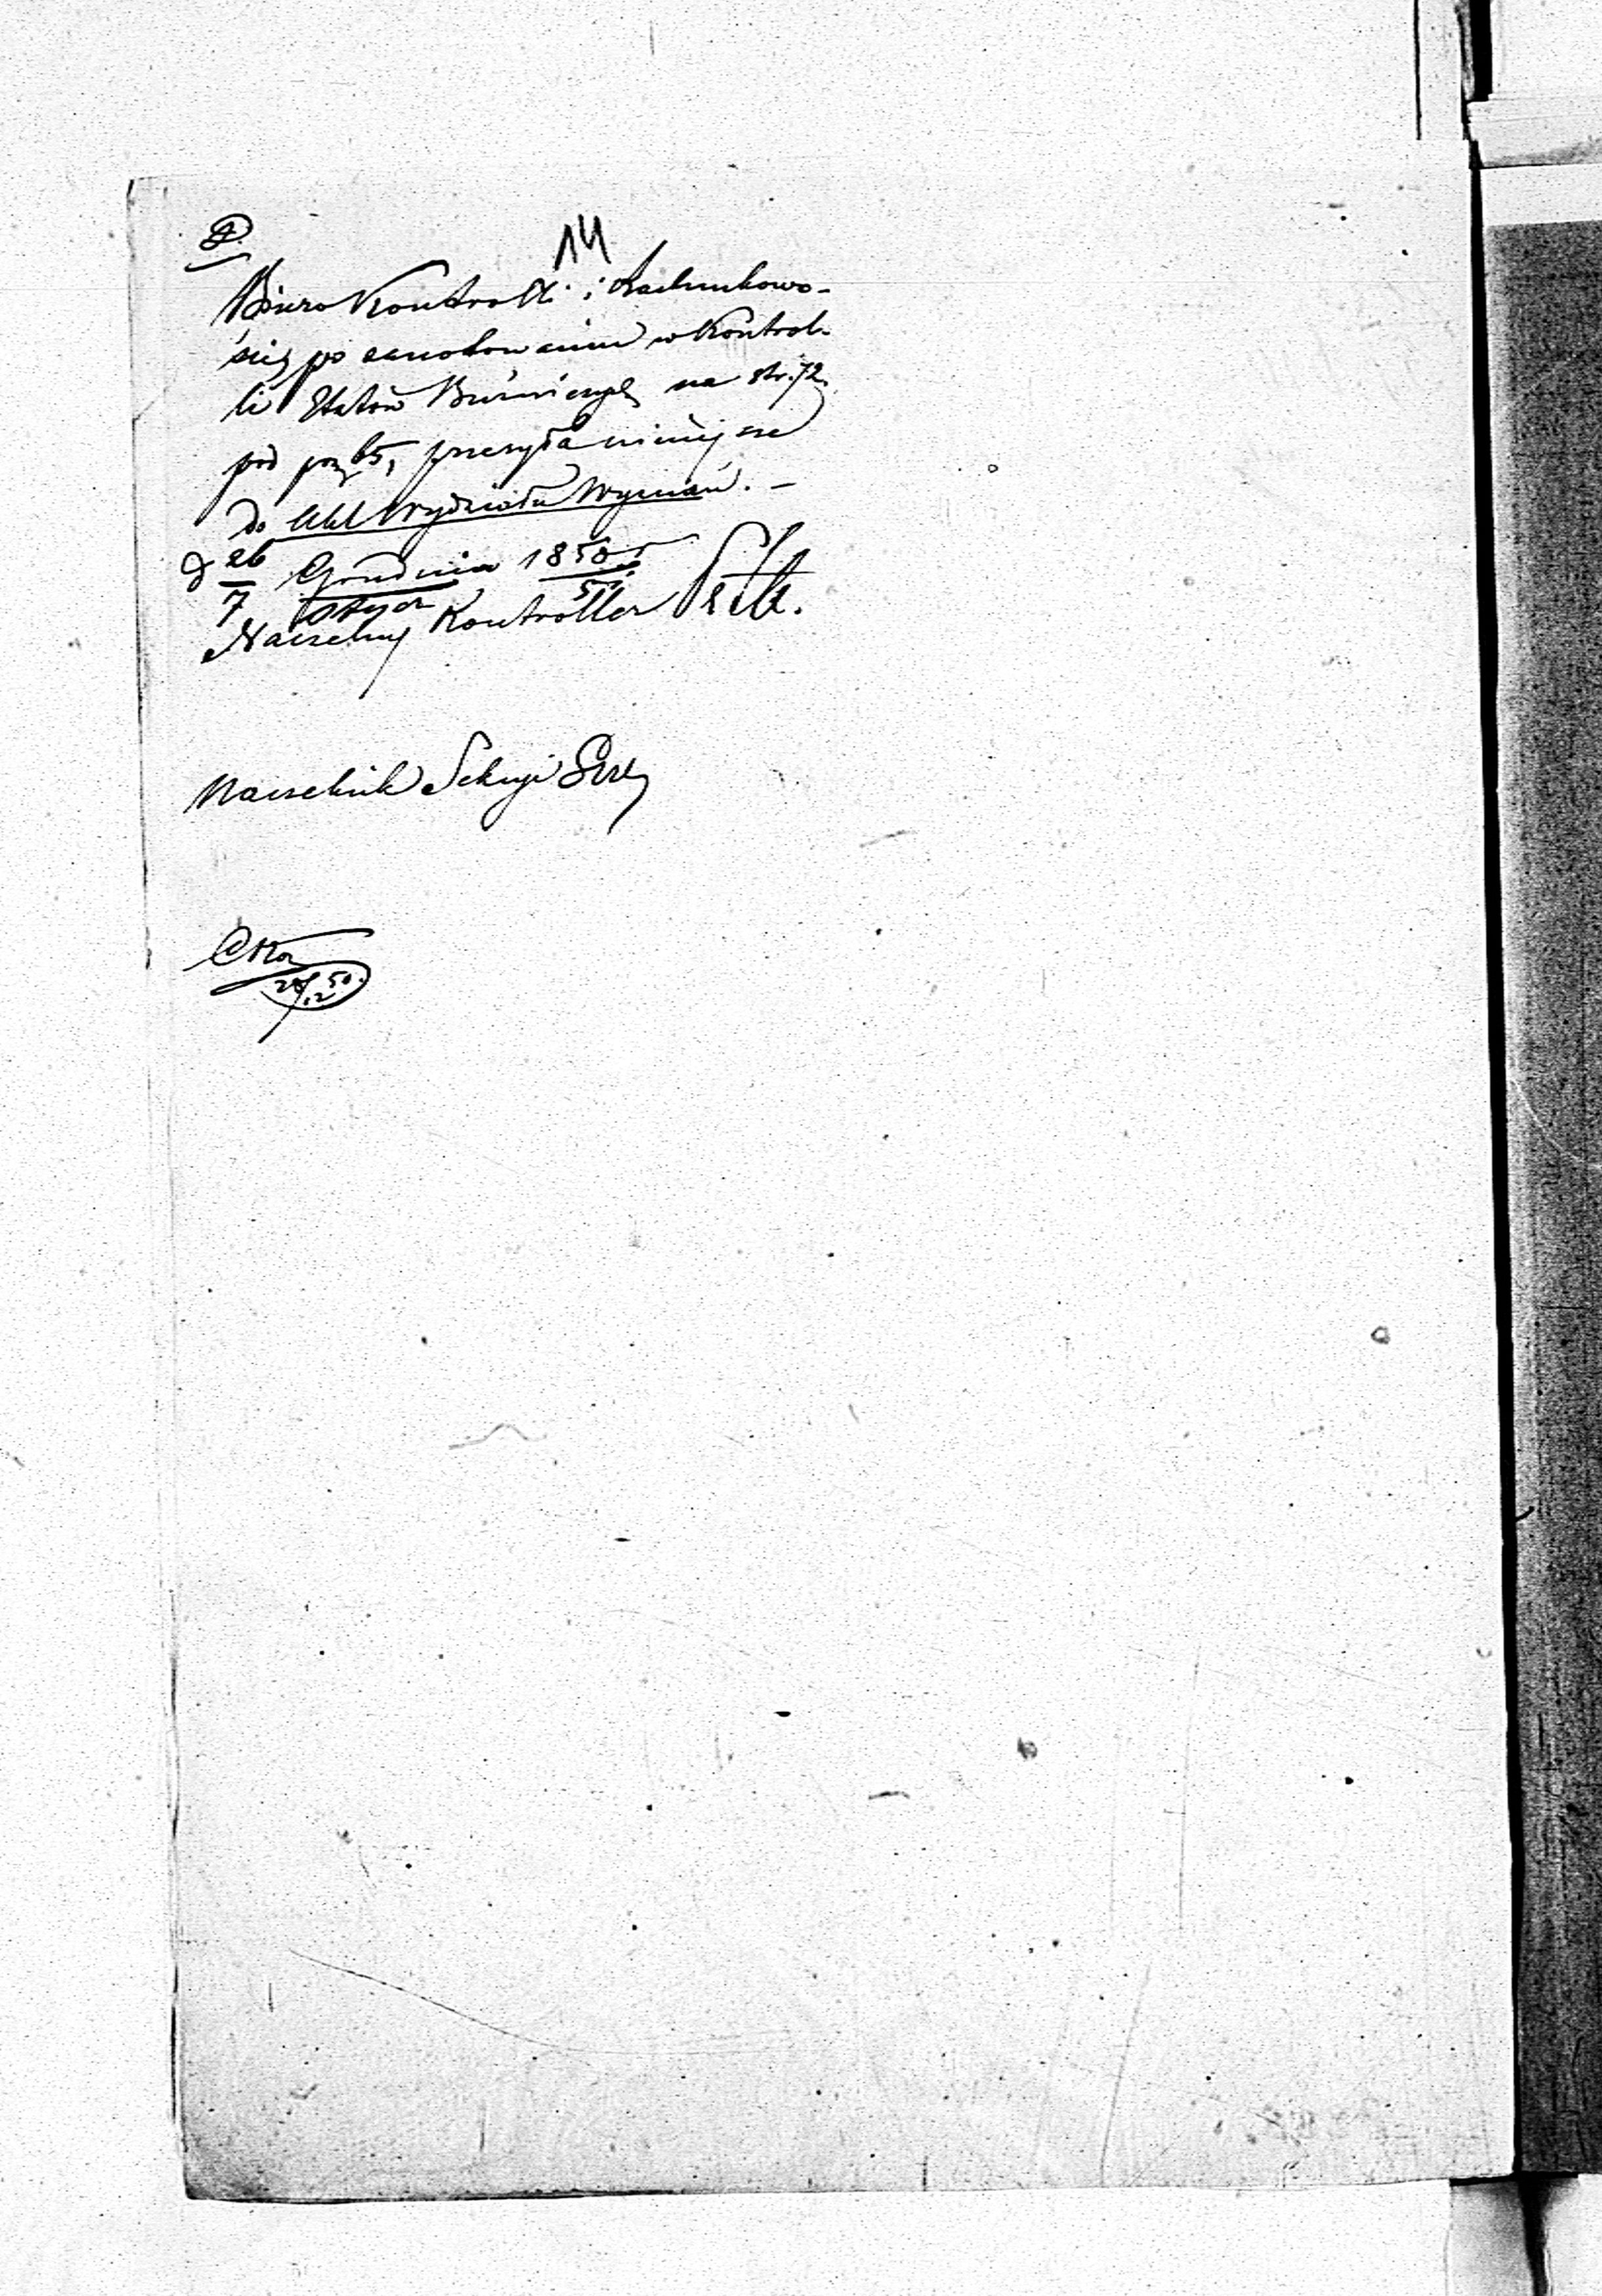 14
Biuro Kontrolli i Rachunkowo-
ści, po zanotowaniu w Kontrol-
li Etatów Bóżniczych na str. 72
pod poz 65, przesyła niniejsze
do Akt Wydziału Wyznań. –
d 26 Grudnia 1850 r
7 Stycz 51
Naczelny Kontroller
Naczelnik Sekcyi
28/12 50.